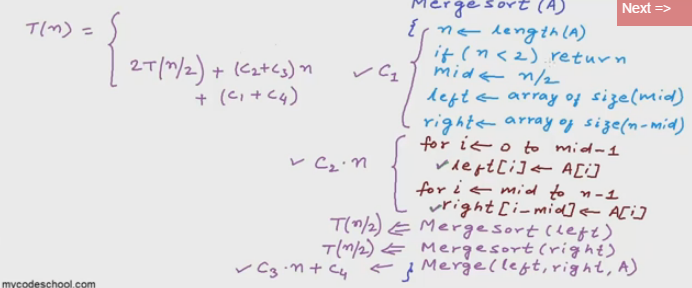 Mergesort(A)
Next =>
T(n) = {
2T(n/2) + (C2+C3)n
+ (C1 + C4)
✓ C1
{ n ← length(A)
if (n < 2) return
mid ← n/2
left ← array of size(mid)
right ← array of size(n-mid)
✓ C2·n
for i ← 0 to mid-1
✓left[i] ← A[i]
for i ← mid to n-1
✓right[i-mid] ← A[i]
T(n/2) ⇐ Mergesort(left)
T(n/2) ⇐ Mergesort(right)
✓ C3·n + C4 ← } Merge(left, right, A)
mycodeschool.com